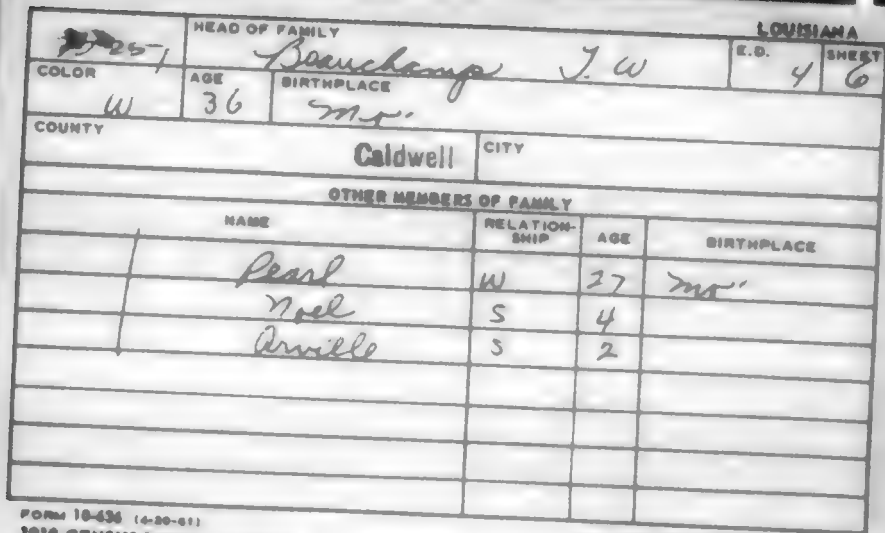 HEAD OF FAMILY LOUISIANA
25-1 Beauchamp J. W E.D. 4 SHEET 6
COLOR W AGE 36 BIRTHPLACE Mo.
COUNTY Caldwell CITY
OTHER MEMBERS OF FAMILY
NAME RELATION-SHIP AGE BIRTHPLACE
Pearl W 27 Mo.
Noel S 4
Arville S 2
FORM 10-636 (4-20-61)
1910 CENSUS